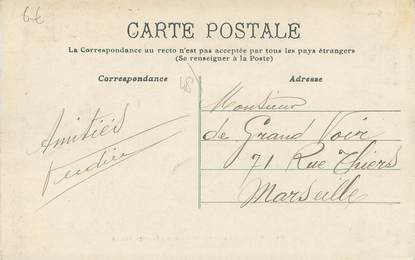 66
CARTE POSTALE
La Correspondance au recto n'est pas acceptée par tous les pays étrangers
(Se renseigner à la Poste)
Correspondance
Adresse
Amitiés
Monsieur
de Grand Voir
71 Rue Thiers
Marseille